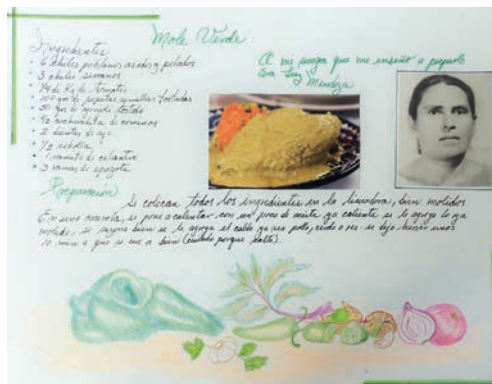 Mole Verde
Ingredientes
• 6 chiles poblanos asados y pelados
• 3 chiles serranos
• 1/4 de kg de tomates
• 100 gm de pepitas tostadas
• 50 gm de ajonjolí tostado
• 1/2 cucharadita de cominos
• 2 dientes de ajo
• 1/2 cebolla
• 1 ramito de cilantro
• 3 ramas de epazote
A mi suegra que me enseñó a prepararlo
Luz Mendoza
Preparación
Se colocan todos los ingredientes en la licuadora, bien molidos
En una cacerola, se pone a calentar con un poco de aceite ya caliente se le agrega lo ya
molido, se sazona bien se le agrega el caldo ya sea pollo, cerdo o res. se deja hervir unos
10 min o a que se cueza bien (cuidado porque salta).